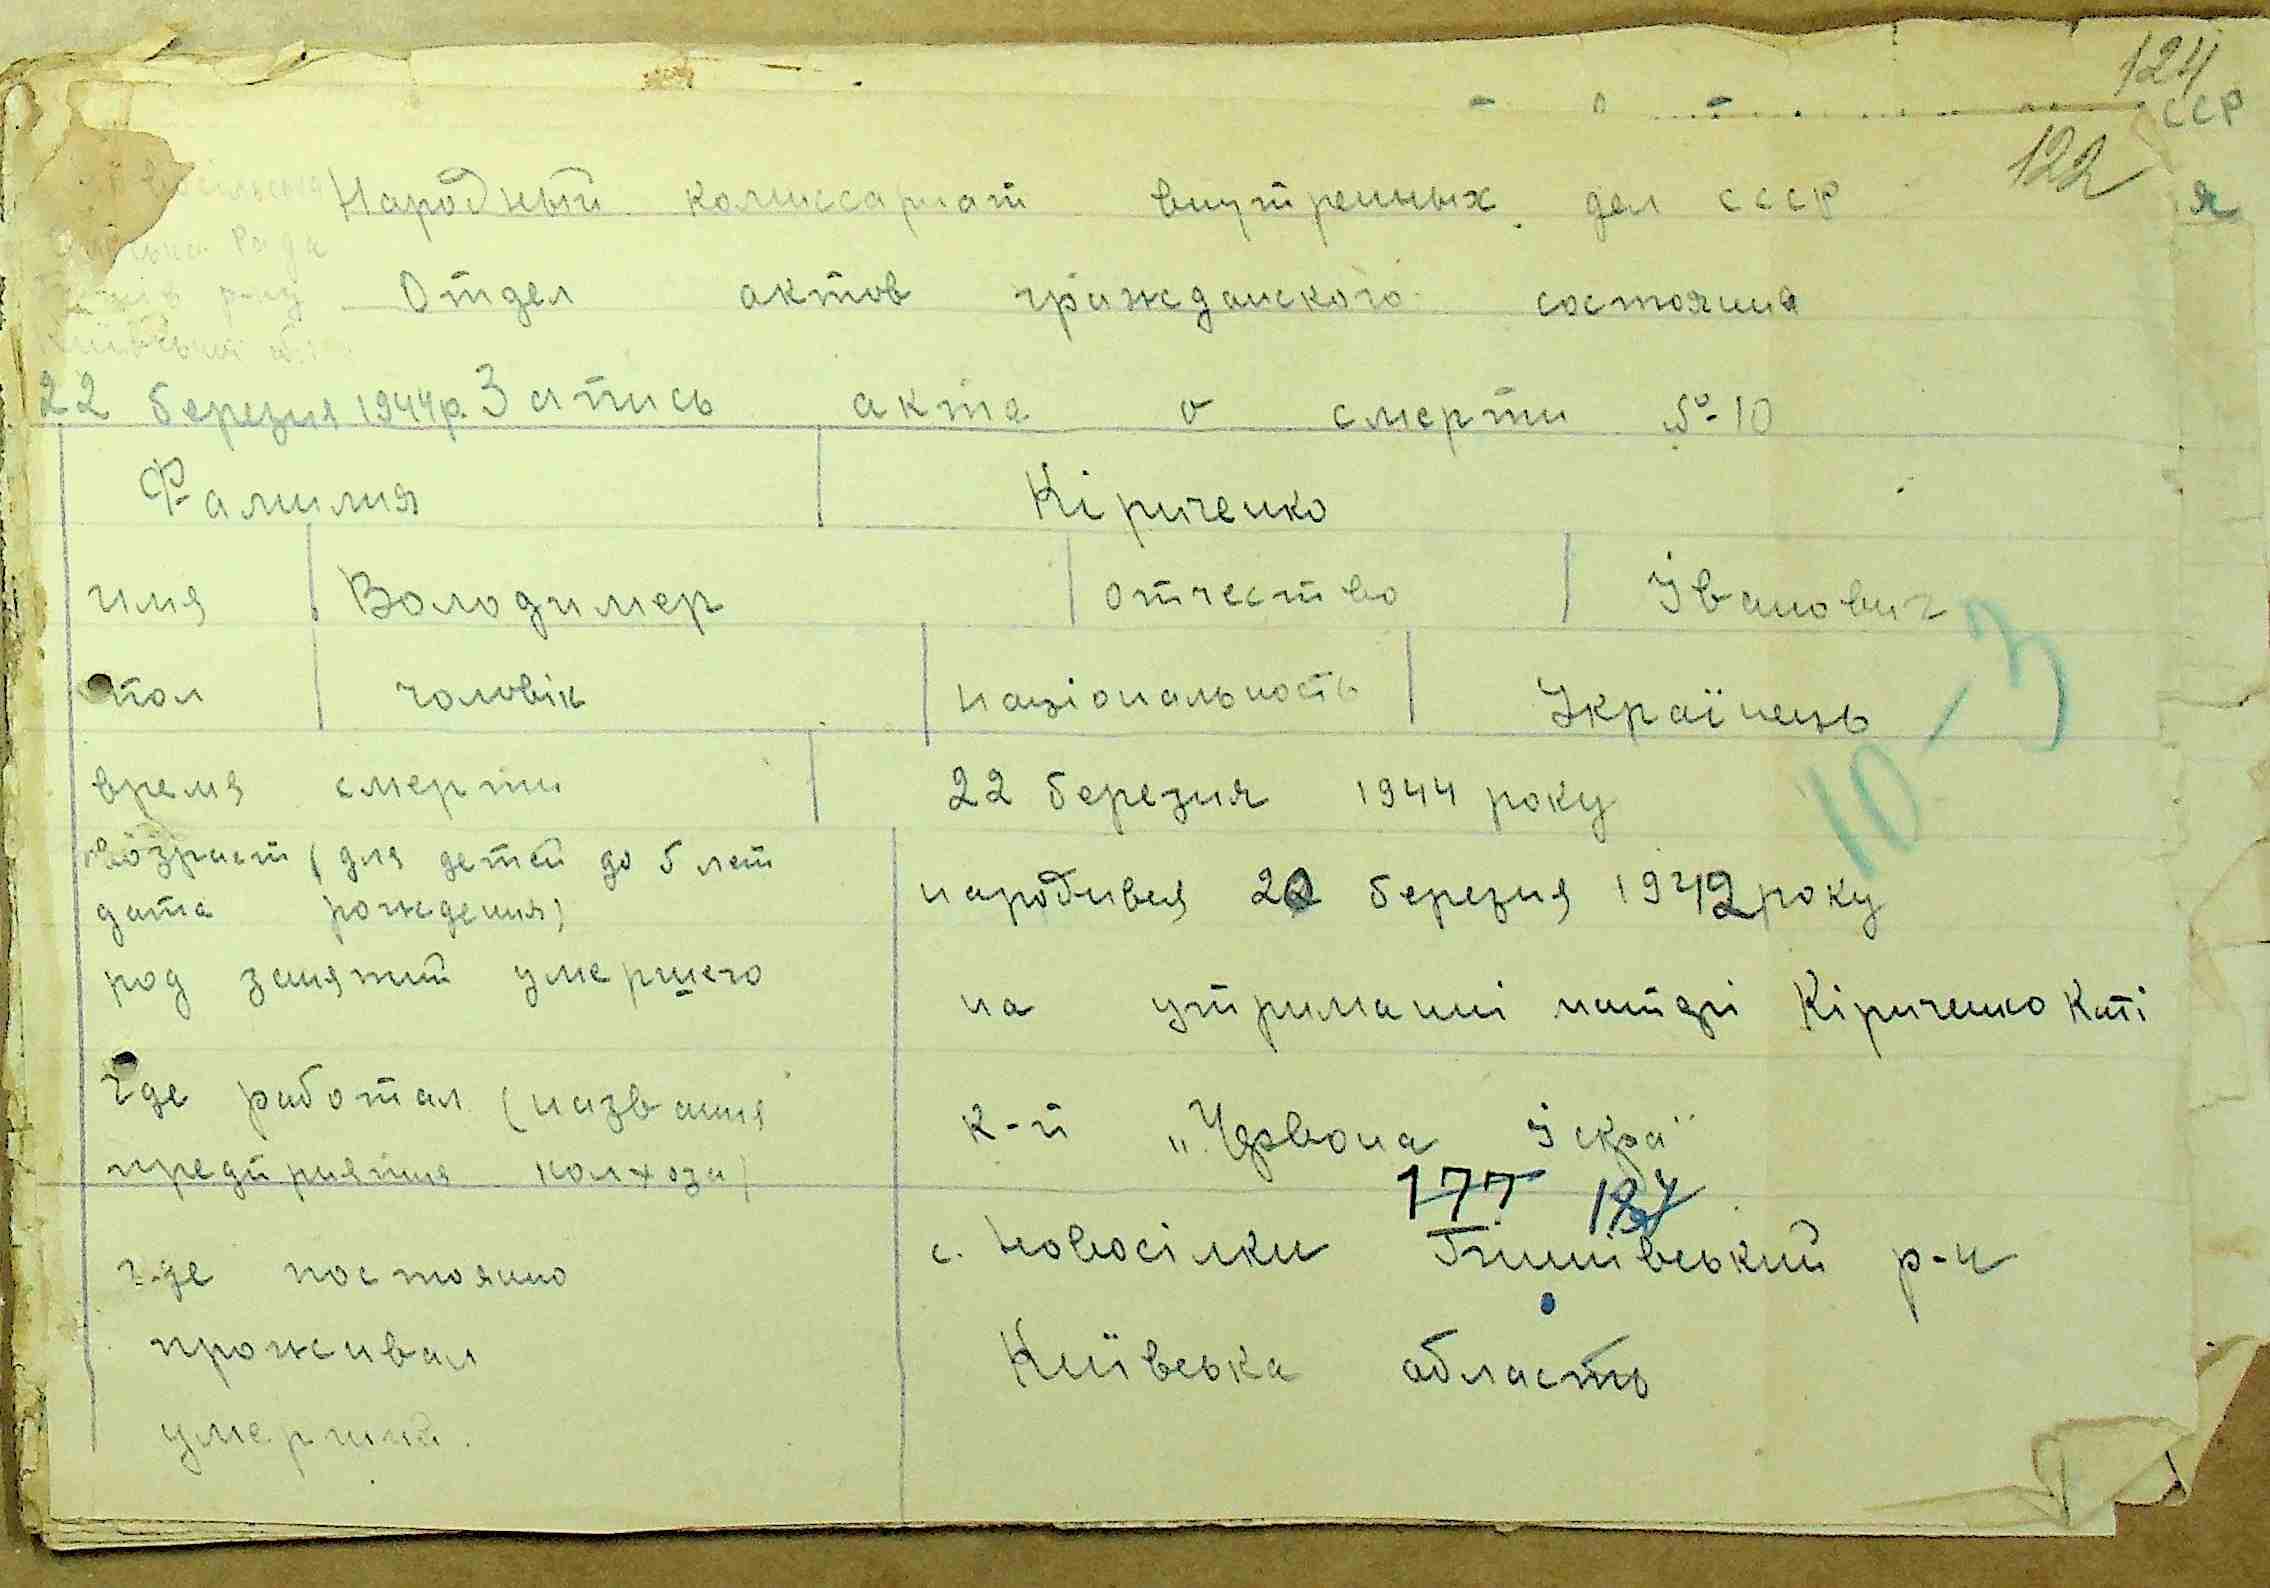 124
ССР
122
я
Народный комиссариат внутренных дел СССР
Рада
р-ну
Отдел актов гражданского состояния
22 березня 1944р. Запись акта о смерти № 10
Фамилия Кіриченко
имя Володимер Отчество Іванович
пол чоловік національность Українець
10-3
время смерти 22 березня 1944 року
возраст (для детей до 5 лет народився 22 березня 1942 року
дата рождения)
род занятий умершего на утриманні матері Кіриченко Каті
где работал (названия к-п „Червона Іскра"
предприятия колхоза)
177
где постоянно с. Новосілки р-н
проживал Київська область
умерший.